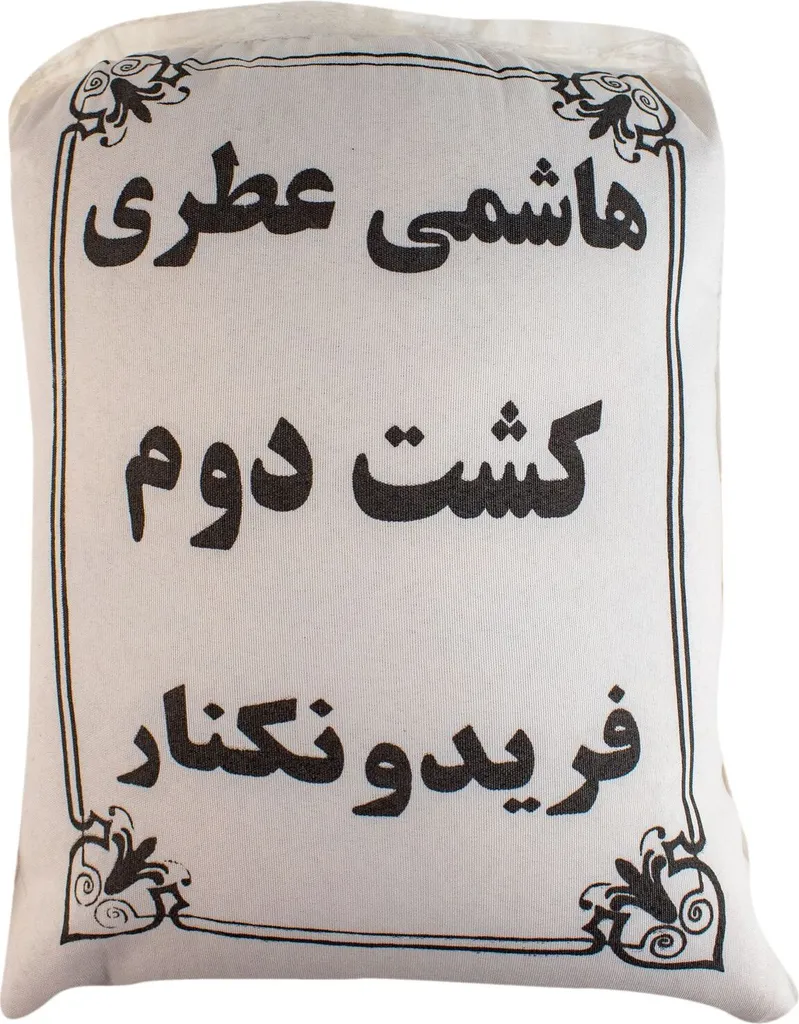 هاشمی عطری
کشت دوم
فریدونکنار